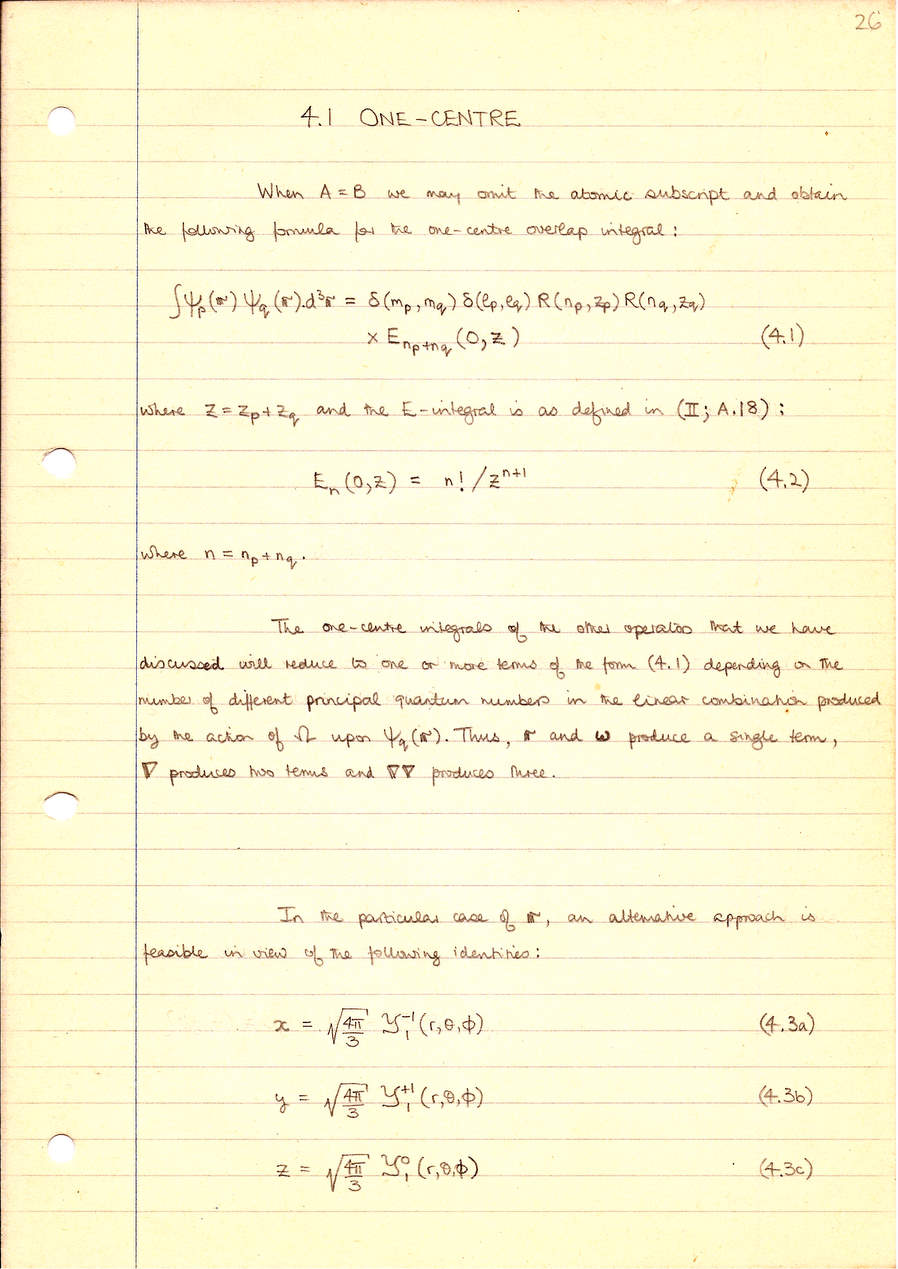 26
4.1 ONE-CENTRE
When A = B we may omit the atomic subscript and obtain
the following formula for the one-centre overlap integral :
∫ψp(𝐫) ψq(𝐫).d³𝐫 = δ(mp, mq) δ(ℓp, ℓq) R(np, zp) R(nq, zq)
× Enp+nq (0, z) (4.1)
where z = zp + zq and the E-integral is as defined in (II; A.18) :
En (0, z) = n! / zⁿ⁺¹ (4.2)
where n = np + nq.
The one-centre integrals of the other operators that we have
discussed will reduce to one or more terms of the form (4.1) depending on the
number of different principal quantum numbers in the linear combination produced
by the action of Ω upon ψq(𝐫). Thus, 𝐫 and ω produce a single term,
∇ produces two terms and ∇∇ produces three.
In the particular case of 𝐫, an alternative approach is
feasible in view of the following identities :
x = √(4π/3) 𝒴₁⁻¹ (r, θ, φ) (4.3a)
y = √(4π/3) 𝒴₁⁺¹ (r, θ, φ) (4.3b)
z = √(4π/3) 𝒴₁⁰ (r, θ, φ) (4.3c)